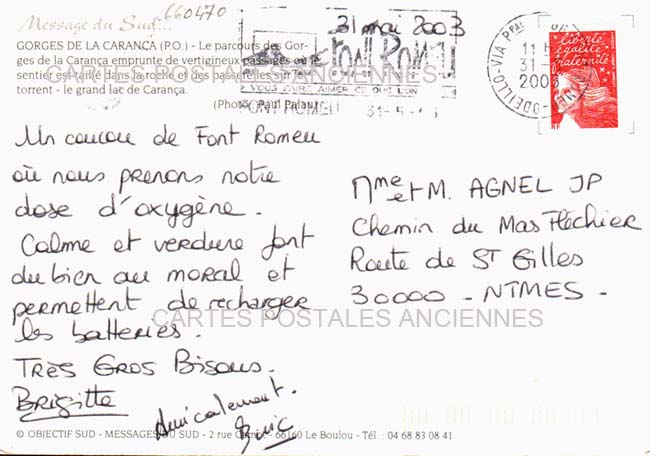 Message du Sud...
660470
31 mai 2003
GORGES DE LA CARANÇA (P.O.) - Le parcours des Gor-
ges de la Carança emprunte de vertigineux passages où le
sentier est taillé dans la roche et des passerelles sur le
torrent - le grand lac de Carança.
(Photo Paul Palau)
FONT ROMEU
VOUS FAIRE AIMER CE QUE L'ON
FONT ROMEU 31-5-03
ODEILLO-VIA
31-
2003
liberté
égalité
fraternité
RF
CARTES POSTALES ANCIENNES
Un coucou de Font Romeu
où nous prenons notre
dose d'oxygène.
Calme et verdure font
du bien au moral et
permettent de recharger
les batteries.
TRÈS GROS BISOUS.
BRIGITTE
Amicalement.
Mme et M. AGNEL JP
Chemin du Mas Fléchier
Route de ST Gilles
30000 - NIMES -
CARTES POSTALES ANCIENNES
© OBJECTIF SUD - MESSAGES DU SUD - 2 rue Carnot - 66160 Le Boulou - Tél : 04 68 83 08 41